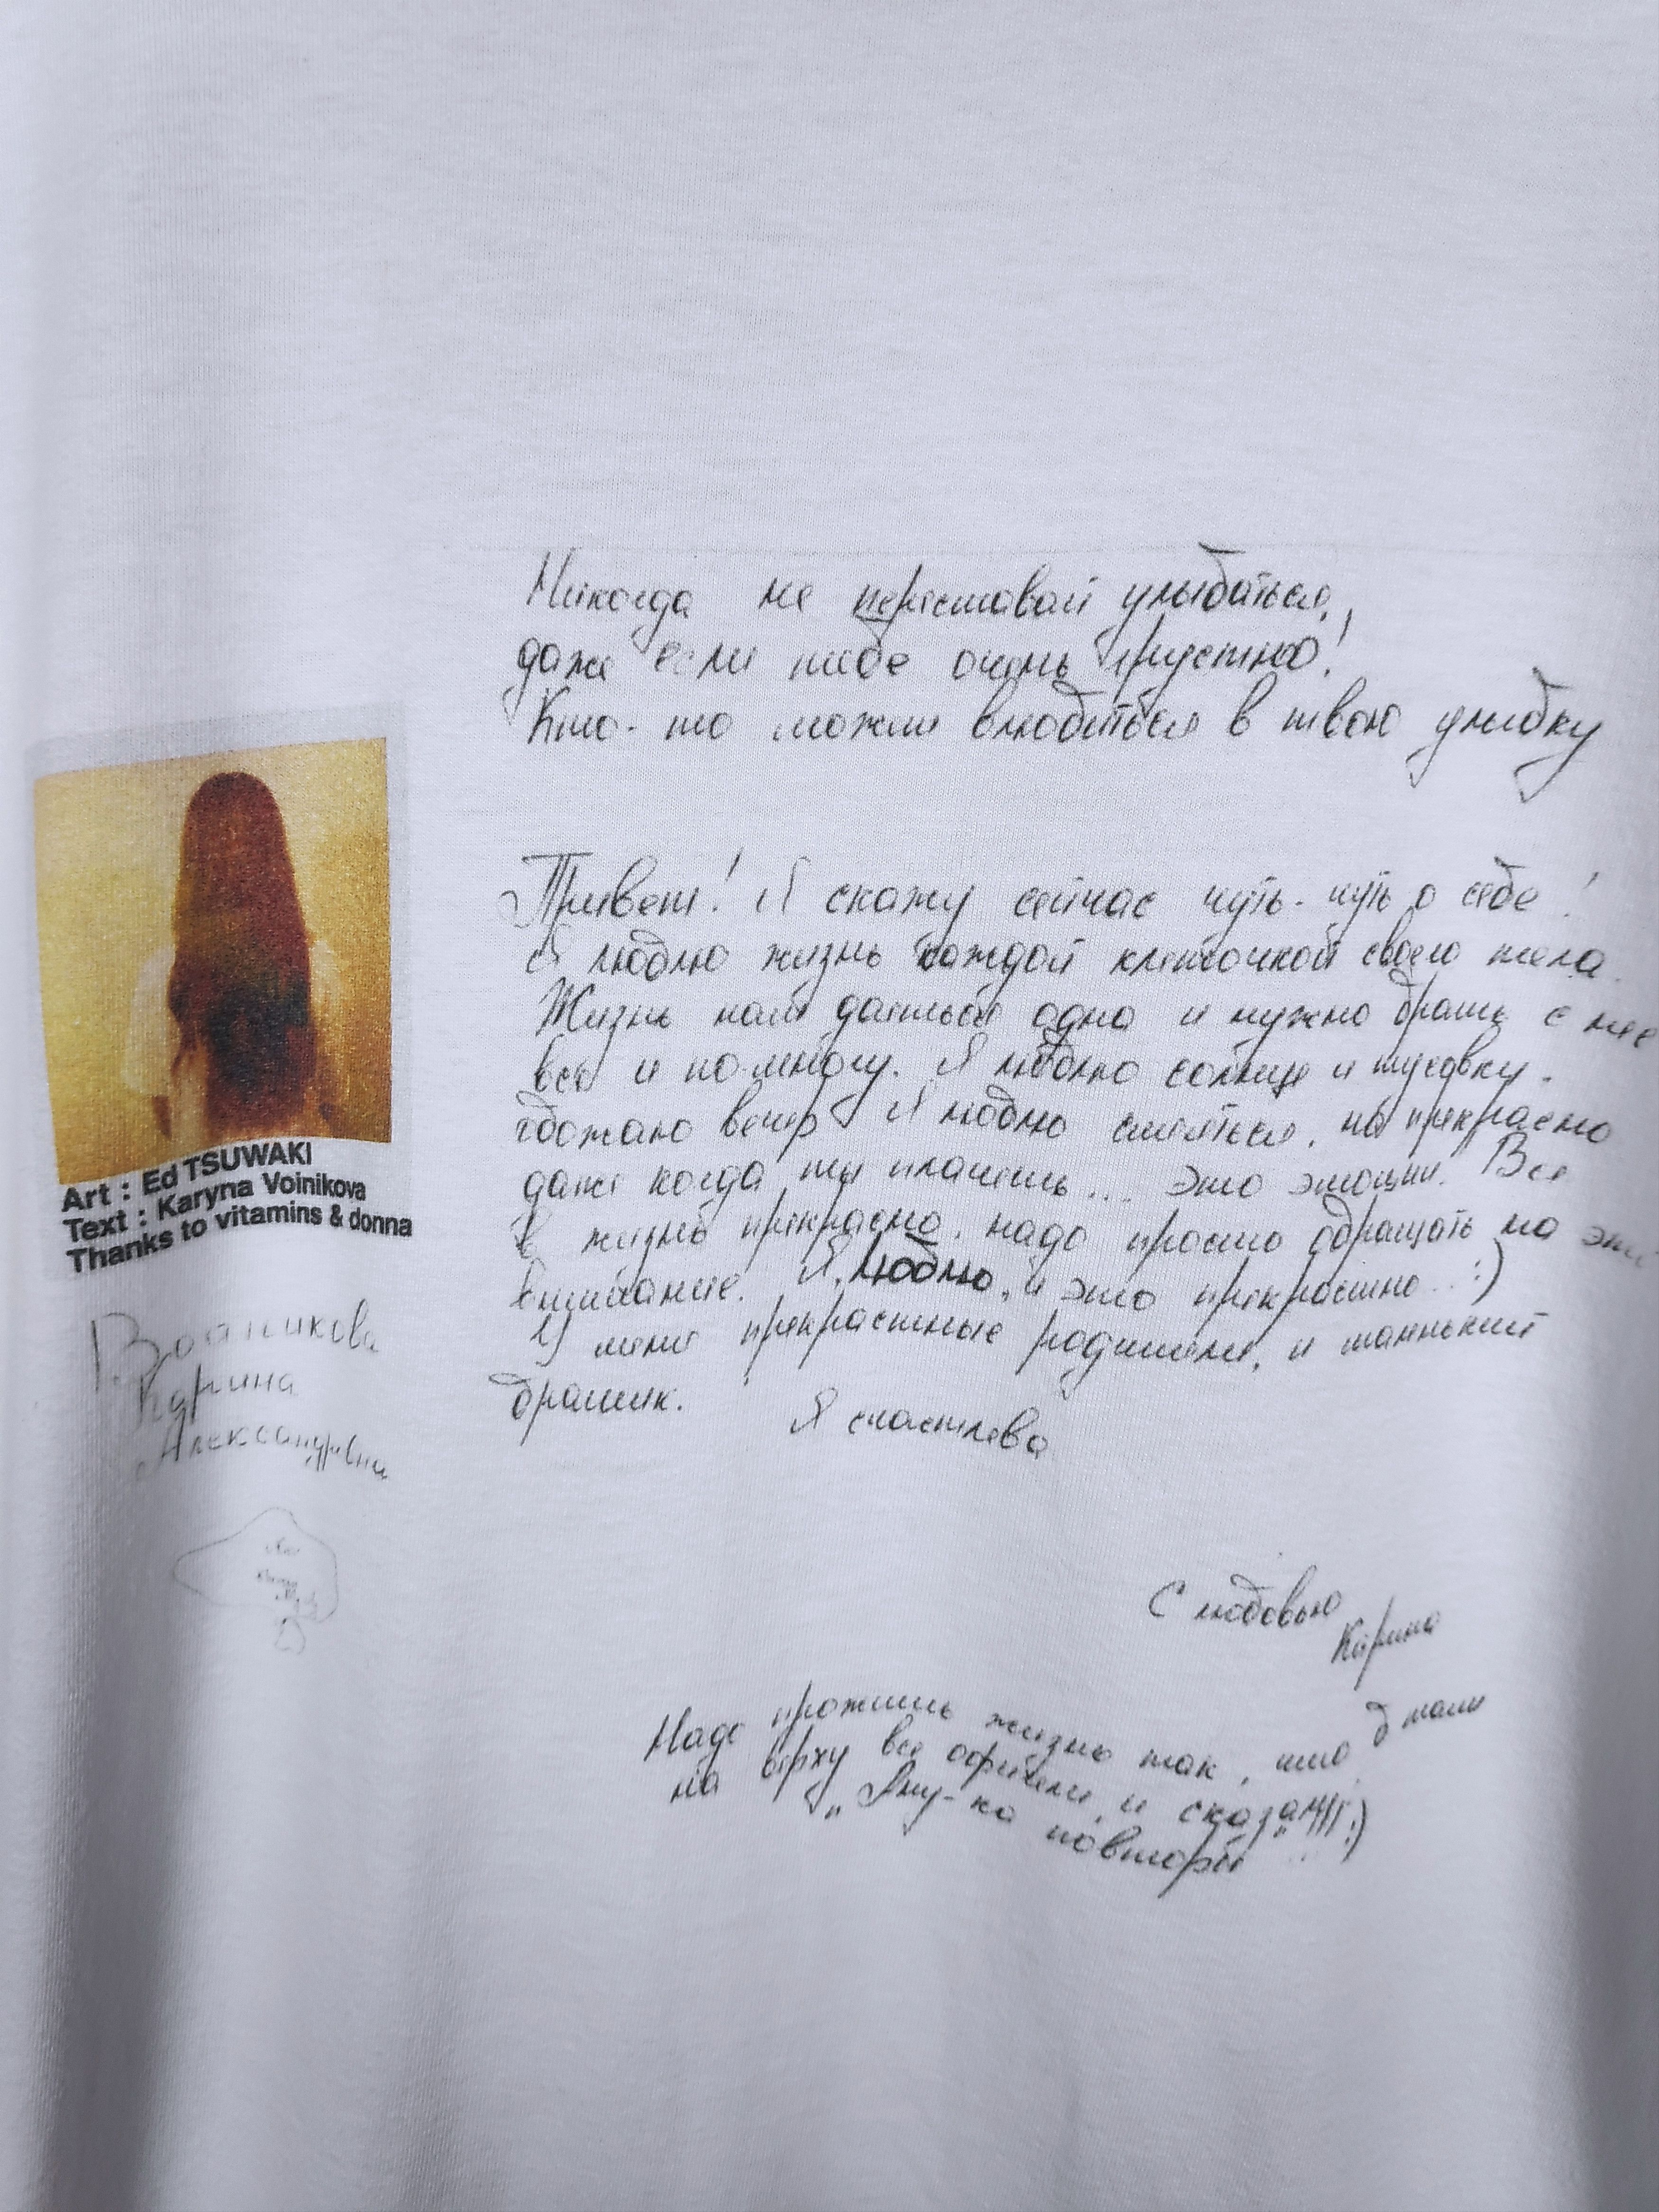 Никогда не переставай улыбаться,
даже если тебе очень грустно!
Кто-то может влюбиться в твою улыбку
Привет! Я скажу сейчас чуть-чуть о себе!
Я люблю жизнь каждой клеточкой своего тела.
Жизнь нам даеться одна и нужно брать с нее
все и помногу. Я люблю солнце и тусовку.
обожаю вечер Я люблю смеяться, но прекрасно
даже когда ты плачешь.... это эмоции. Все
в жизнь прекрасно, надо просто обращать на это
внимание. Я люблю, и это прекрастно.. :)
У меня прекрастные родители, и маленький
братик.
Я счастлева
С любовью
Карина
Надо прожить жизнь так, что б там
на верху все офигели и сказали :)
"Яну-ка повтори"...
Art : Ed TSUWAKI
Text : Karyna Voinikova
Thanks to vitamins & donna
Войникова
Карина
Александровна